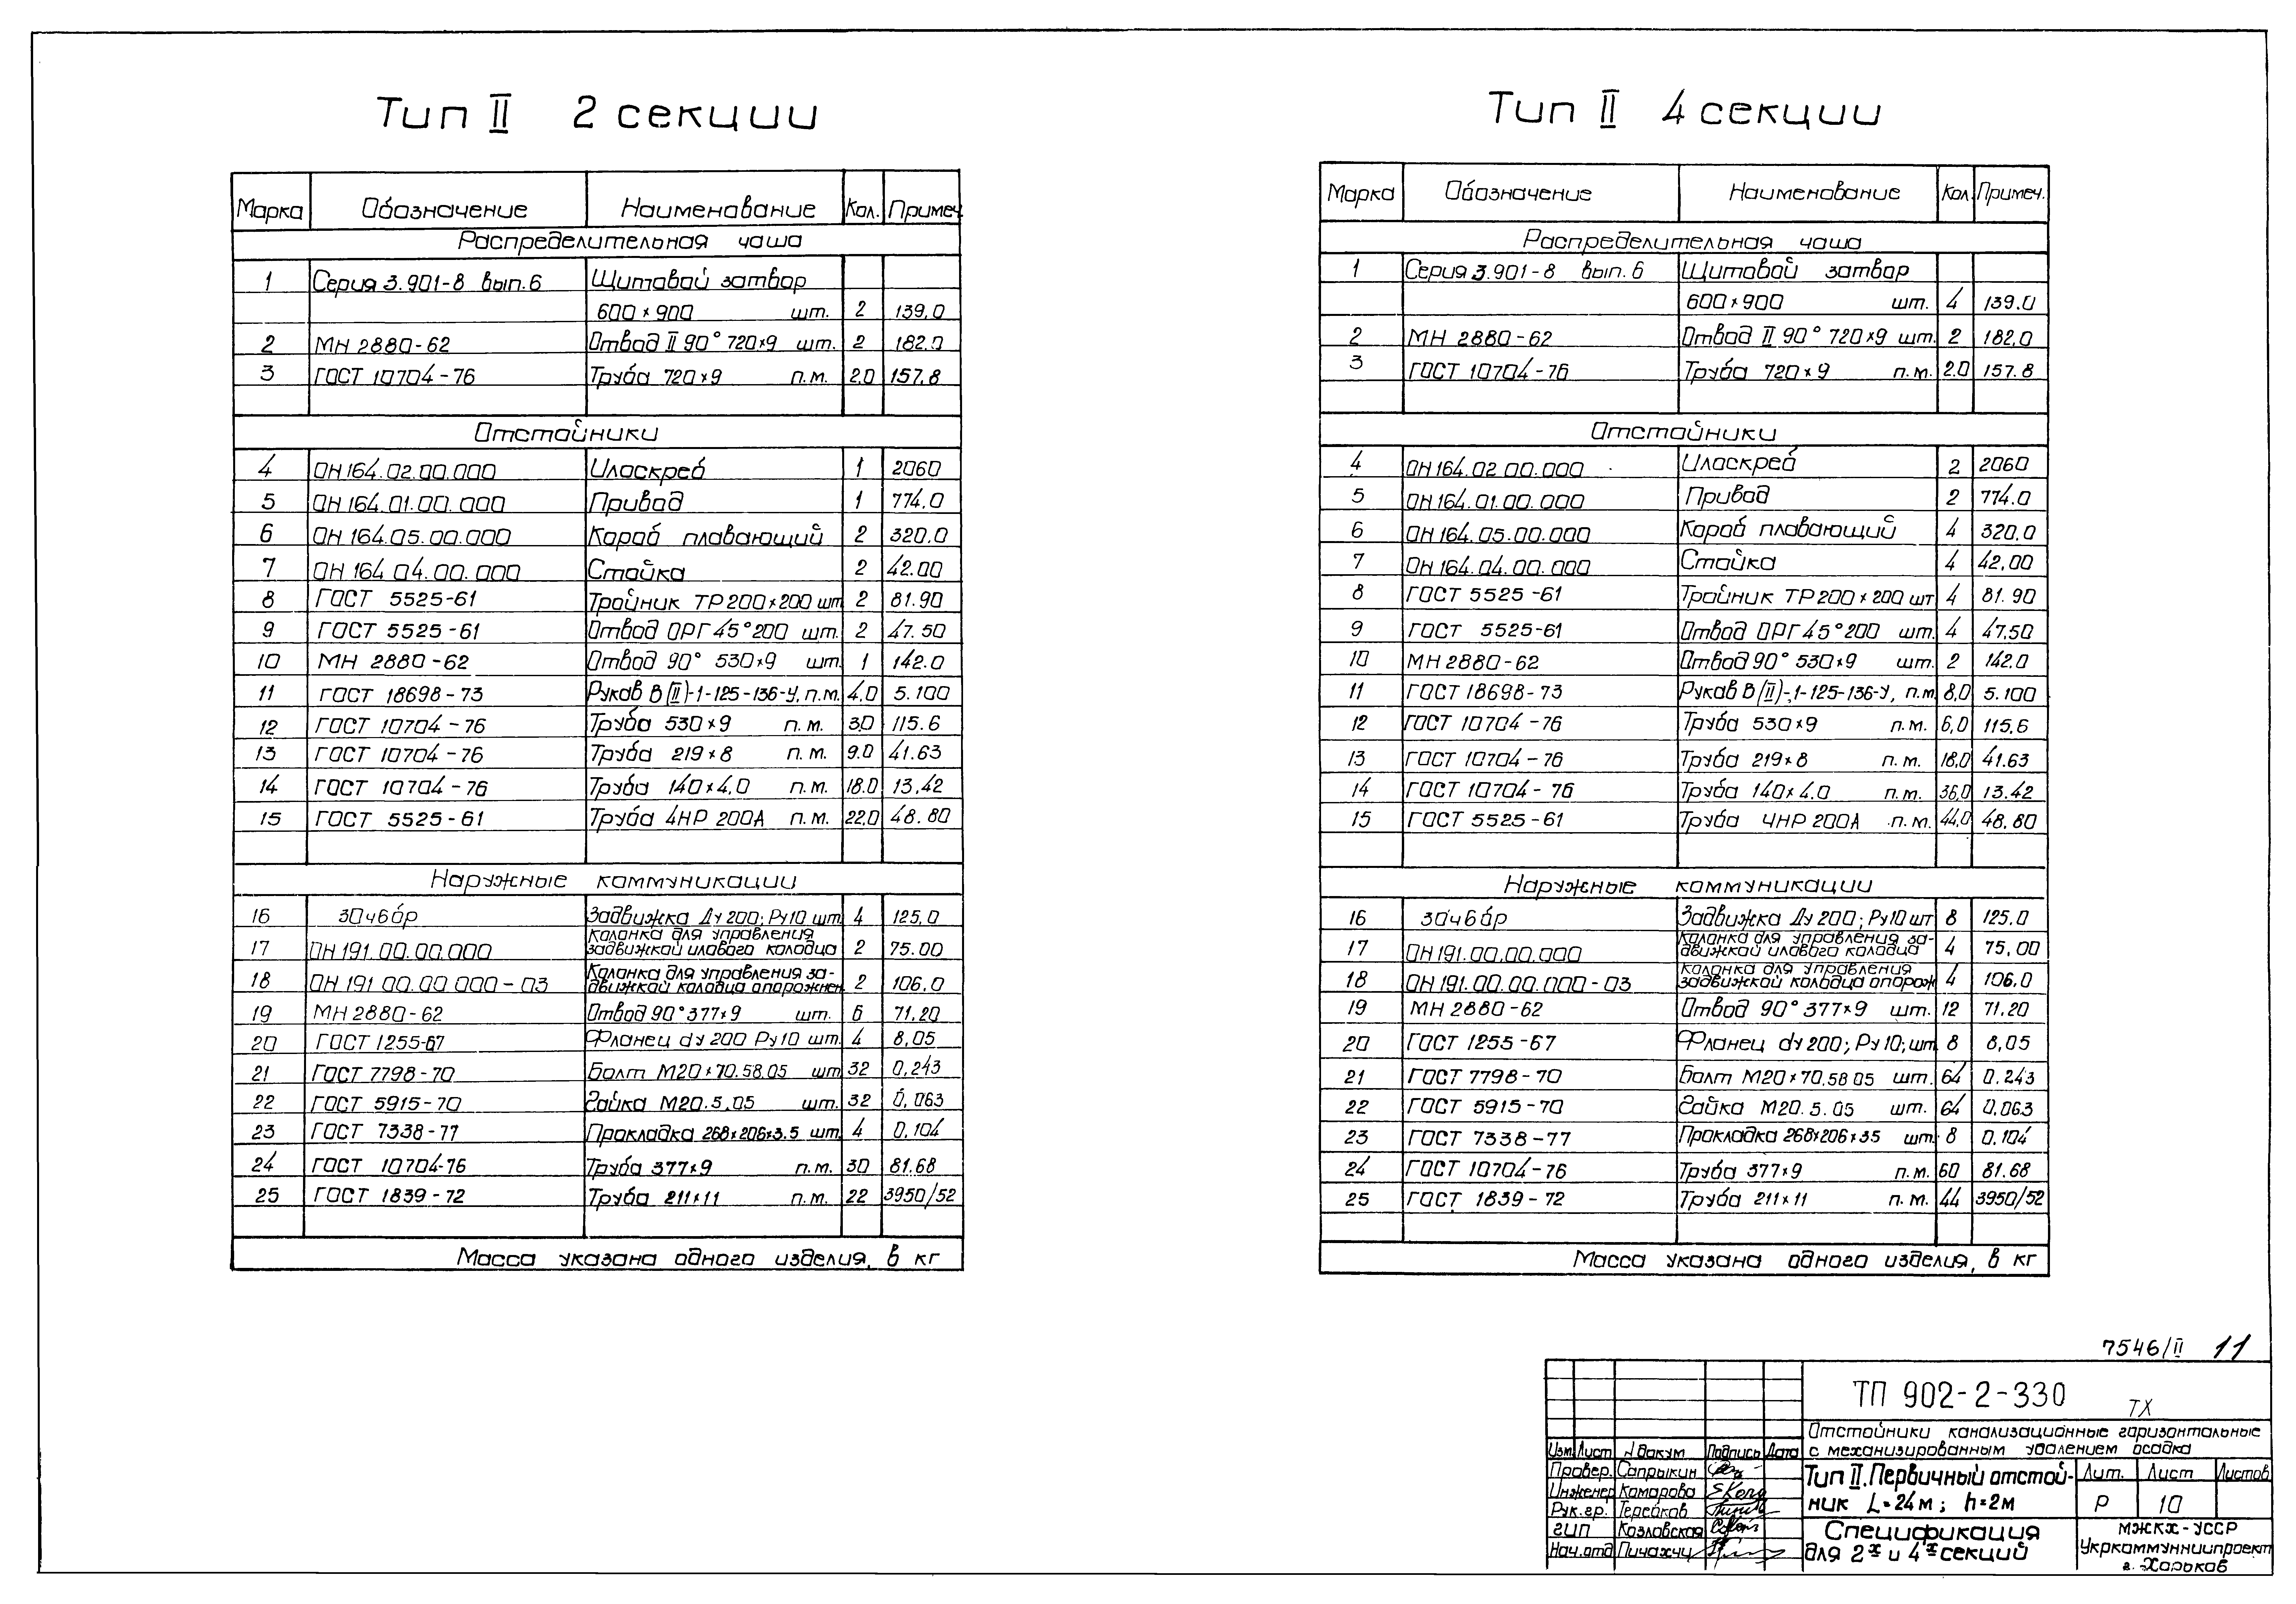 Тип II 2 секции
Марка Обозначение Наименование Кол. Примеч.
Распределительная чаша
1 Серия 3.901-8 вып.6 Щитовой затвор
600×900 шт. 2 139.0
2 МН 2880-62 Отвод II 90° 720×9 шт. 2 182.0
3 ГОСТ 10704-76 Труба 720×9 п.м. 2.0 157.8
Отстойники
4 ОН 164.02.00.000 Илоскреб 1 2060
5 ОН 164.01.00.000 Привод 1 774.0
6 ОН 164.05.00.000 Короб плавающий 2 320.0
7 ОН 164 04.00.000 Стойка 2 42.00
8 ГОСТ 5525-61 Тройник ТР 200×200 шт 2 81.90
9 ГОСТ 5525-61 Отвод ОРГ 45°200 шт. 2 47.50
10 МН 2880-62 Отвод 90° 530×9 шт. 1 142.0
11 ГОСТ 18698-73 Рукав В(II)-1-125-136-У, п.м. 4,0 5.100
12 ГОСТ 10704-76 Труба 530×9 п.м. 3,0 115.6
13 ГОСТ 10704-76 Труба 219×8 п.м. 9.0 41.63
14 ГОСТ 10704-76 Труба 140×4,0 п.м. 18.0 13,42
15 ГОСТ 5525-61 Труба ЧНР 200А п.м. 22,0 48.80
Наружные коммуникации
16 30ч6бр Задвижка Ду 200; Ру10 шт 4 125,0
17 ОН 191.00.00.000 Колонка для управления
задвижкой илового колодца 2 75.00
18 ОН 191 00.00 000-03 Колонка для управления за-
движкой колодца опорожнен. 2 106,0
19 МН 2880-62 Отвод 90° 377×9 шт. 6 71,20
20 ГОСТ 1255-67 Фланец dу 200 Ру10 шт. 4 8,05
21 ГОСТ 7798-70 Болт М20×70.58.05 шт 32 0,243
22 ГОСТ 5915-70 Гайка М20.5.05 шт. 32 0,063
23 ГОСТ 7338-77 Прокладка 268×206×3.5 шт. 4 0,104
24 ГОСТ 10704-76 Труба 377×9 п.м. 30 81.68
25 ГОСТ 1839-72 Труба 211×11 п.м. 22 3950/52
Масса указана одного изделия, в кг
Тип II 4 секции
Марка Обозначение Наименование Кол. Примеч.
Распределительная чаша
1 Серия 3.901-8 вып.6 Щитовой затвор
600×900 шт. 4 139.0
2 МН 2880-62 Отвод II 90° 720×9 шт. 2 182,0
3 ГОСТ 10704-76 Труба 720×9 п.м. 2.0 157.8
Отстойники
4 ОН 164.02 00.000 Илоскреб 2 2060
5 ОН 164.01.00.000 Привод 2 774.0
6 ОН 164.05.00.000 Короб плавающий 4 320,0
7 ОН 164.04.00.000 Стойка 4 42,00
8 ГОСТ 5525-61 Тройник ТР 200×200 шт 4 81.90
9 ГОСТ 5525-61 Отвод ОРГ 45°200 шт. 4 47,50
10 МН 2880-62 Отвод 90° 530×9 шт. 2 142.0
11 ГОСТ 18698-73 Рукав В(II)-1-125-136-У, п.м. 8,0 5.100
12 ГОСТ 10704-76 Труба 530×9 п.м. 6,0 115,6
13 ГОСТ 10704-76 Труба 219×8 п.м. 18,0 41.63
14 ГОСТ 10704-76 Труба 140×4.0 п.м. 36,0 13.42
15 ГОСТ 5525-61 Труба ЧНР 200А п.м. 44,0 48,80
Наружные коммуникации
16 30ч6бр Задвижка Ду 200; Ру10 шт 8 125.0
17 ОН 191.00.00.000 Колонка для управления за-
движкой илового колодца 4 75,00
18 ОН 191.00.00.000-03 Колонка для управления
задвижкой колодца опорож 4 106,0
19 МН 2880-62 Отвод 90° 377×9 шт. 12 71.20
20 ГОСТ 1255-67 Фланец dу 200; Ру10; шт 8 8,05
21 ГОСТ 7798-70 Болт М20×70,58 05 шт. 64 0.243
22 ГОСТ 5915-70 Гайка М20.5.05 шт. 64 0,063
23 ГОСТ 7338-77 Прокладка 268×206×3.5 шт. 8 0,104
24 ГОСТ 10704-76 Труба 377×9 п.м. 60 81.68
25 ГОСТ 1839-72 Труба 211×11 п.м. 44 3950/52
Масса указана одного изделия, в кг
7546/II 11
ТП 902-2-330 ТХ
Отстойники канализационные горизонтальные
с механизированным удалением осадка
Изм. Лист № докум Подпись Дата
Провер. Сапрыкин
Инженер Комарова
Рук.гр. Теребков
ГИП Козловская
Нач.отд Пичахчи
Тип II. Первичный отстой-
ник L=24м; h=2м
Лит. Лист Листов
Р 10
Спецификация
для 2х и 4х секций
МЖКХ-УССР
Укркоммунниипроект
г. Харьков